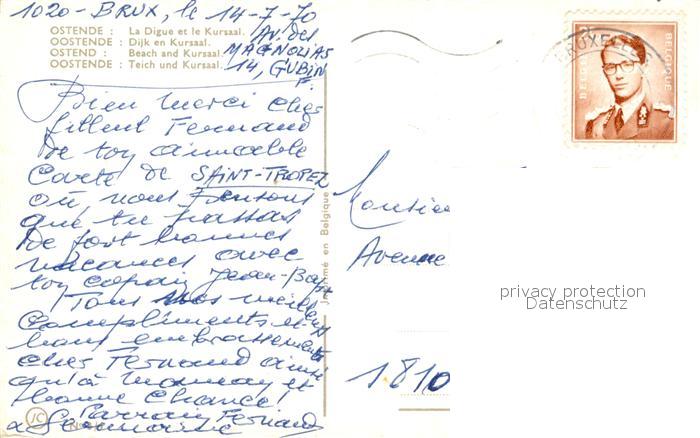 1020 - BRUX, le 14-7-70
OSTENDE : La Digue et le Kursaal.
OOSTENDE : Dijk en Kursaal.
OSTEND : Beach and Kursaal.
OOSTENDE : Teich und Kursaal.
AV. des
MAGNOLIAS
14, GUBIN
F.
Bien merci cher
filleul Fernand
de toy aimable
Carte de SAINT-TROPEZ
où, nous pensons
que tu passas
de fort bonnes
vacances avec
toy copain Jean-Bapt
Tous nos meilleurs
Compliments et
bons embrassements
cher Fernand ainsi
qu'à maman et
Bonne Chance!
Parrain Fernand
&
Imprimé en Belgique
BRUXELLES
BELGIE BELGIQUE
Monsieu
Avenue
1810
privacy protection
Datenschutz
JC